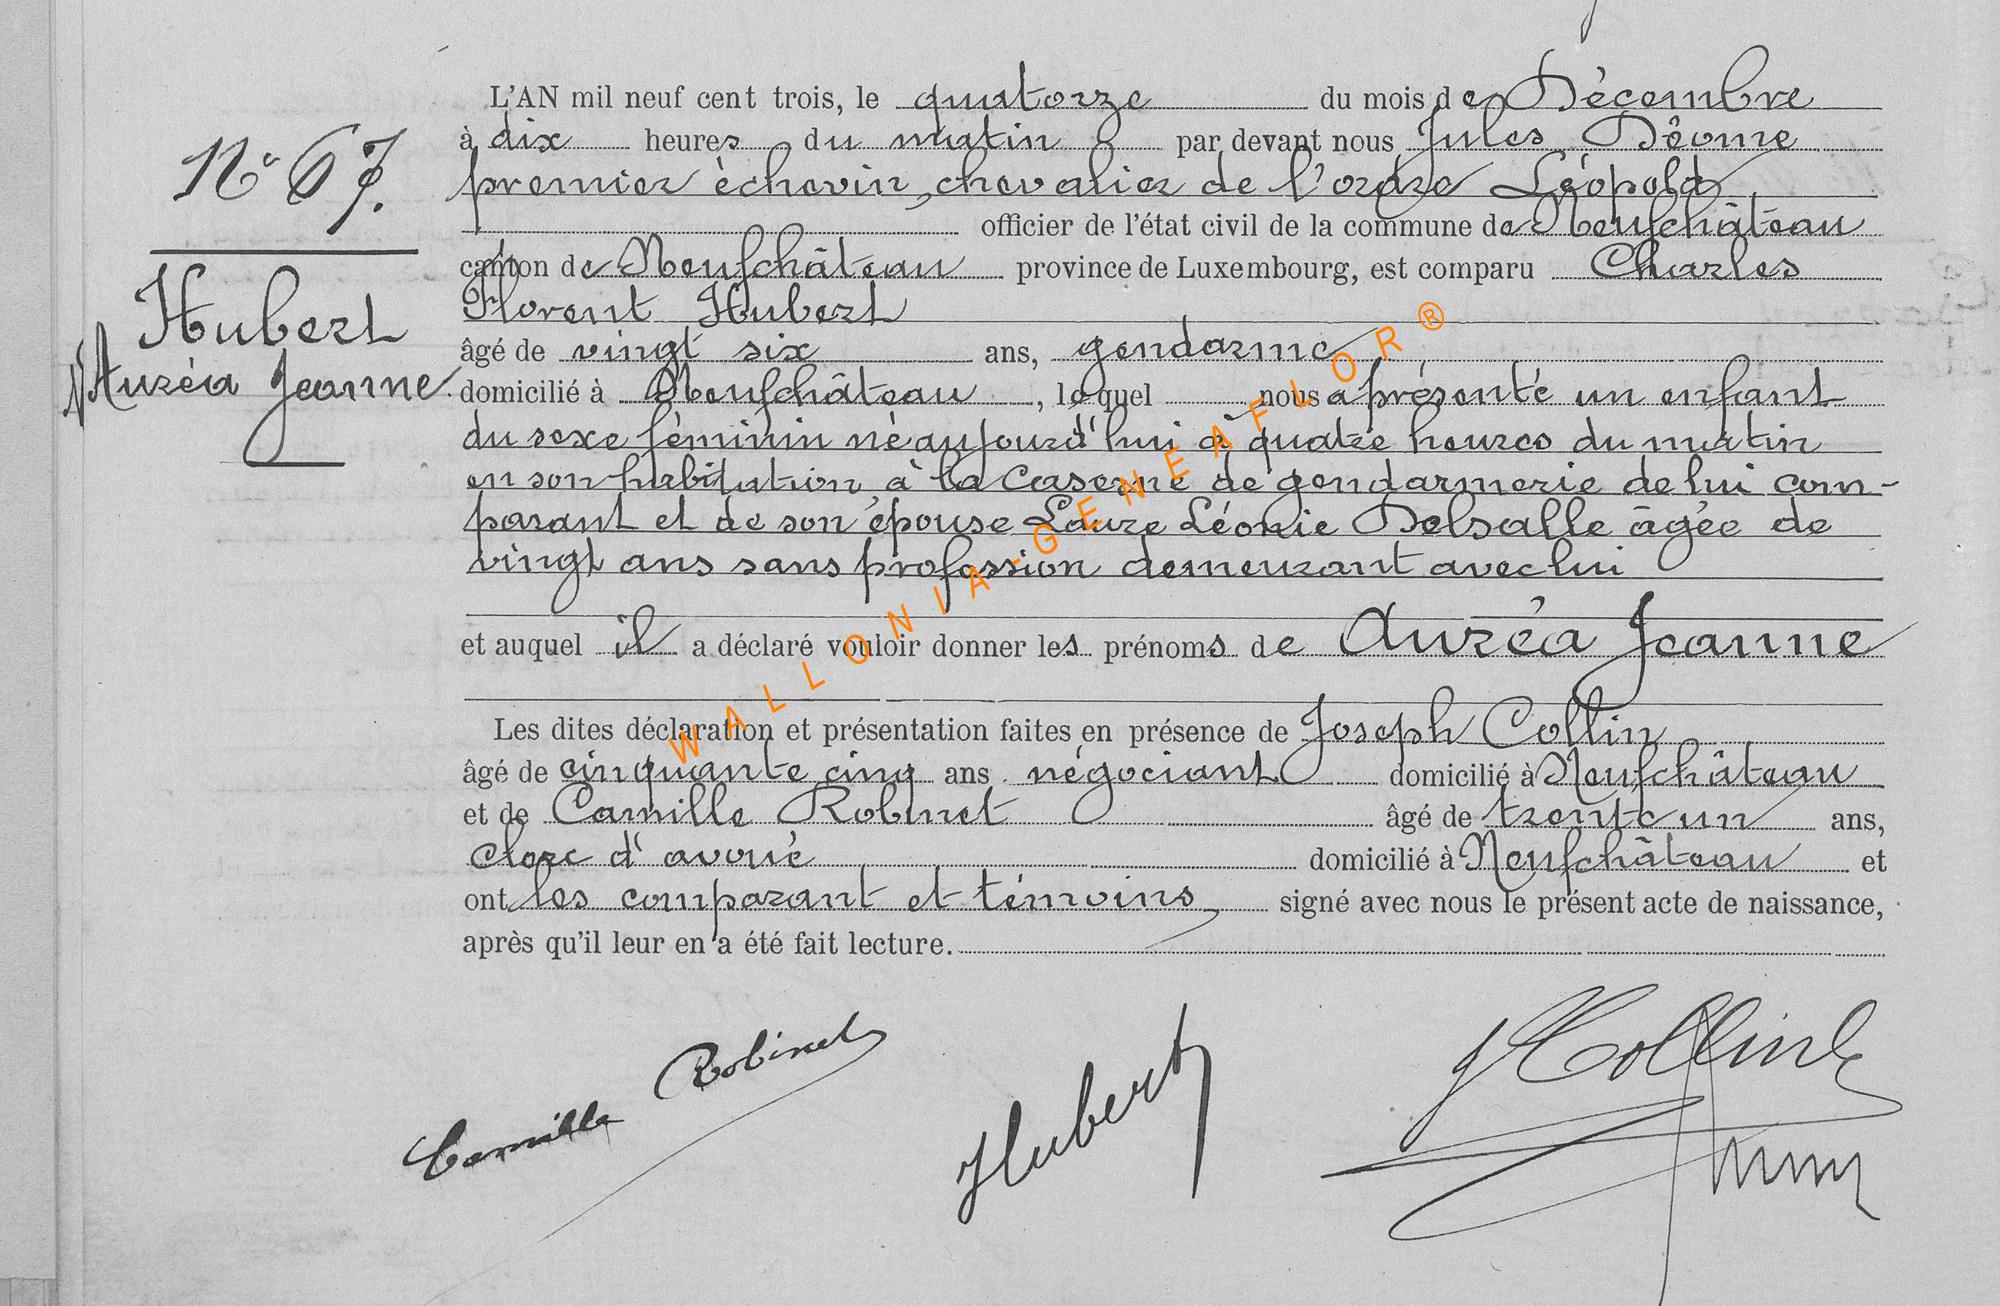 N° 67.
Hubert
Auréa Jeanne.
L'AN mil neuf cent trois, le quatorze du mois de Décembre
à dix heures du matin par devant nous Jules Déome
premier échevin, chevalier de l'ordre Léopold
officier de l'état civil de la commune de Neufchâteau
canton de Neufchâteau province de Luxembourg, est comparu Charles
Florent Hubert
âgé de vingt six ans, gendarme
domicilié à Neufchâteau, lequel nous a présenté un enfant
du sexe féminin né aujourd'hui à quatre heures du matin
en son habitation, à la Caserne de gendarmerie de lui com-
parant et de son épouse Laure Léonie Delsalle âgée de
vingt ans sans profession demeurant avec lui
et auquel il a déclaré vouloir donner les prénoms de Auréa Jeanne
Les dites déclaration et présentation faites en présence de Joseph Collin
âgé de cinquante cinq ans négociant domicilié à Neufchâteau
et de Camille Robinet âgé de trente un ans,
clerc d'avoué domicilié à Neufchâteau et
ont les comparant et témoins signé avec nous le présent acte de naissance,
après qu'il leur en a été fait lecture.
Camille Robinet
Hubert
J Collin
WALLONIA-GENEAFLOR®